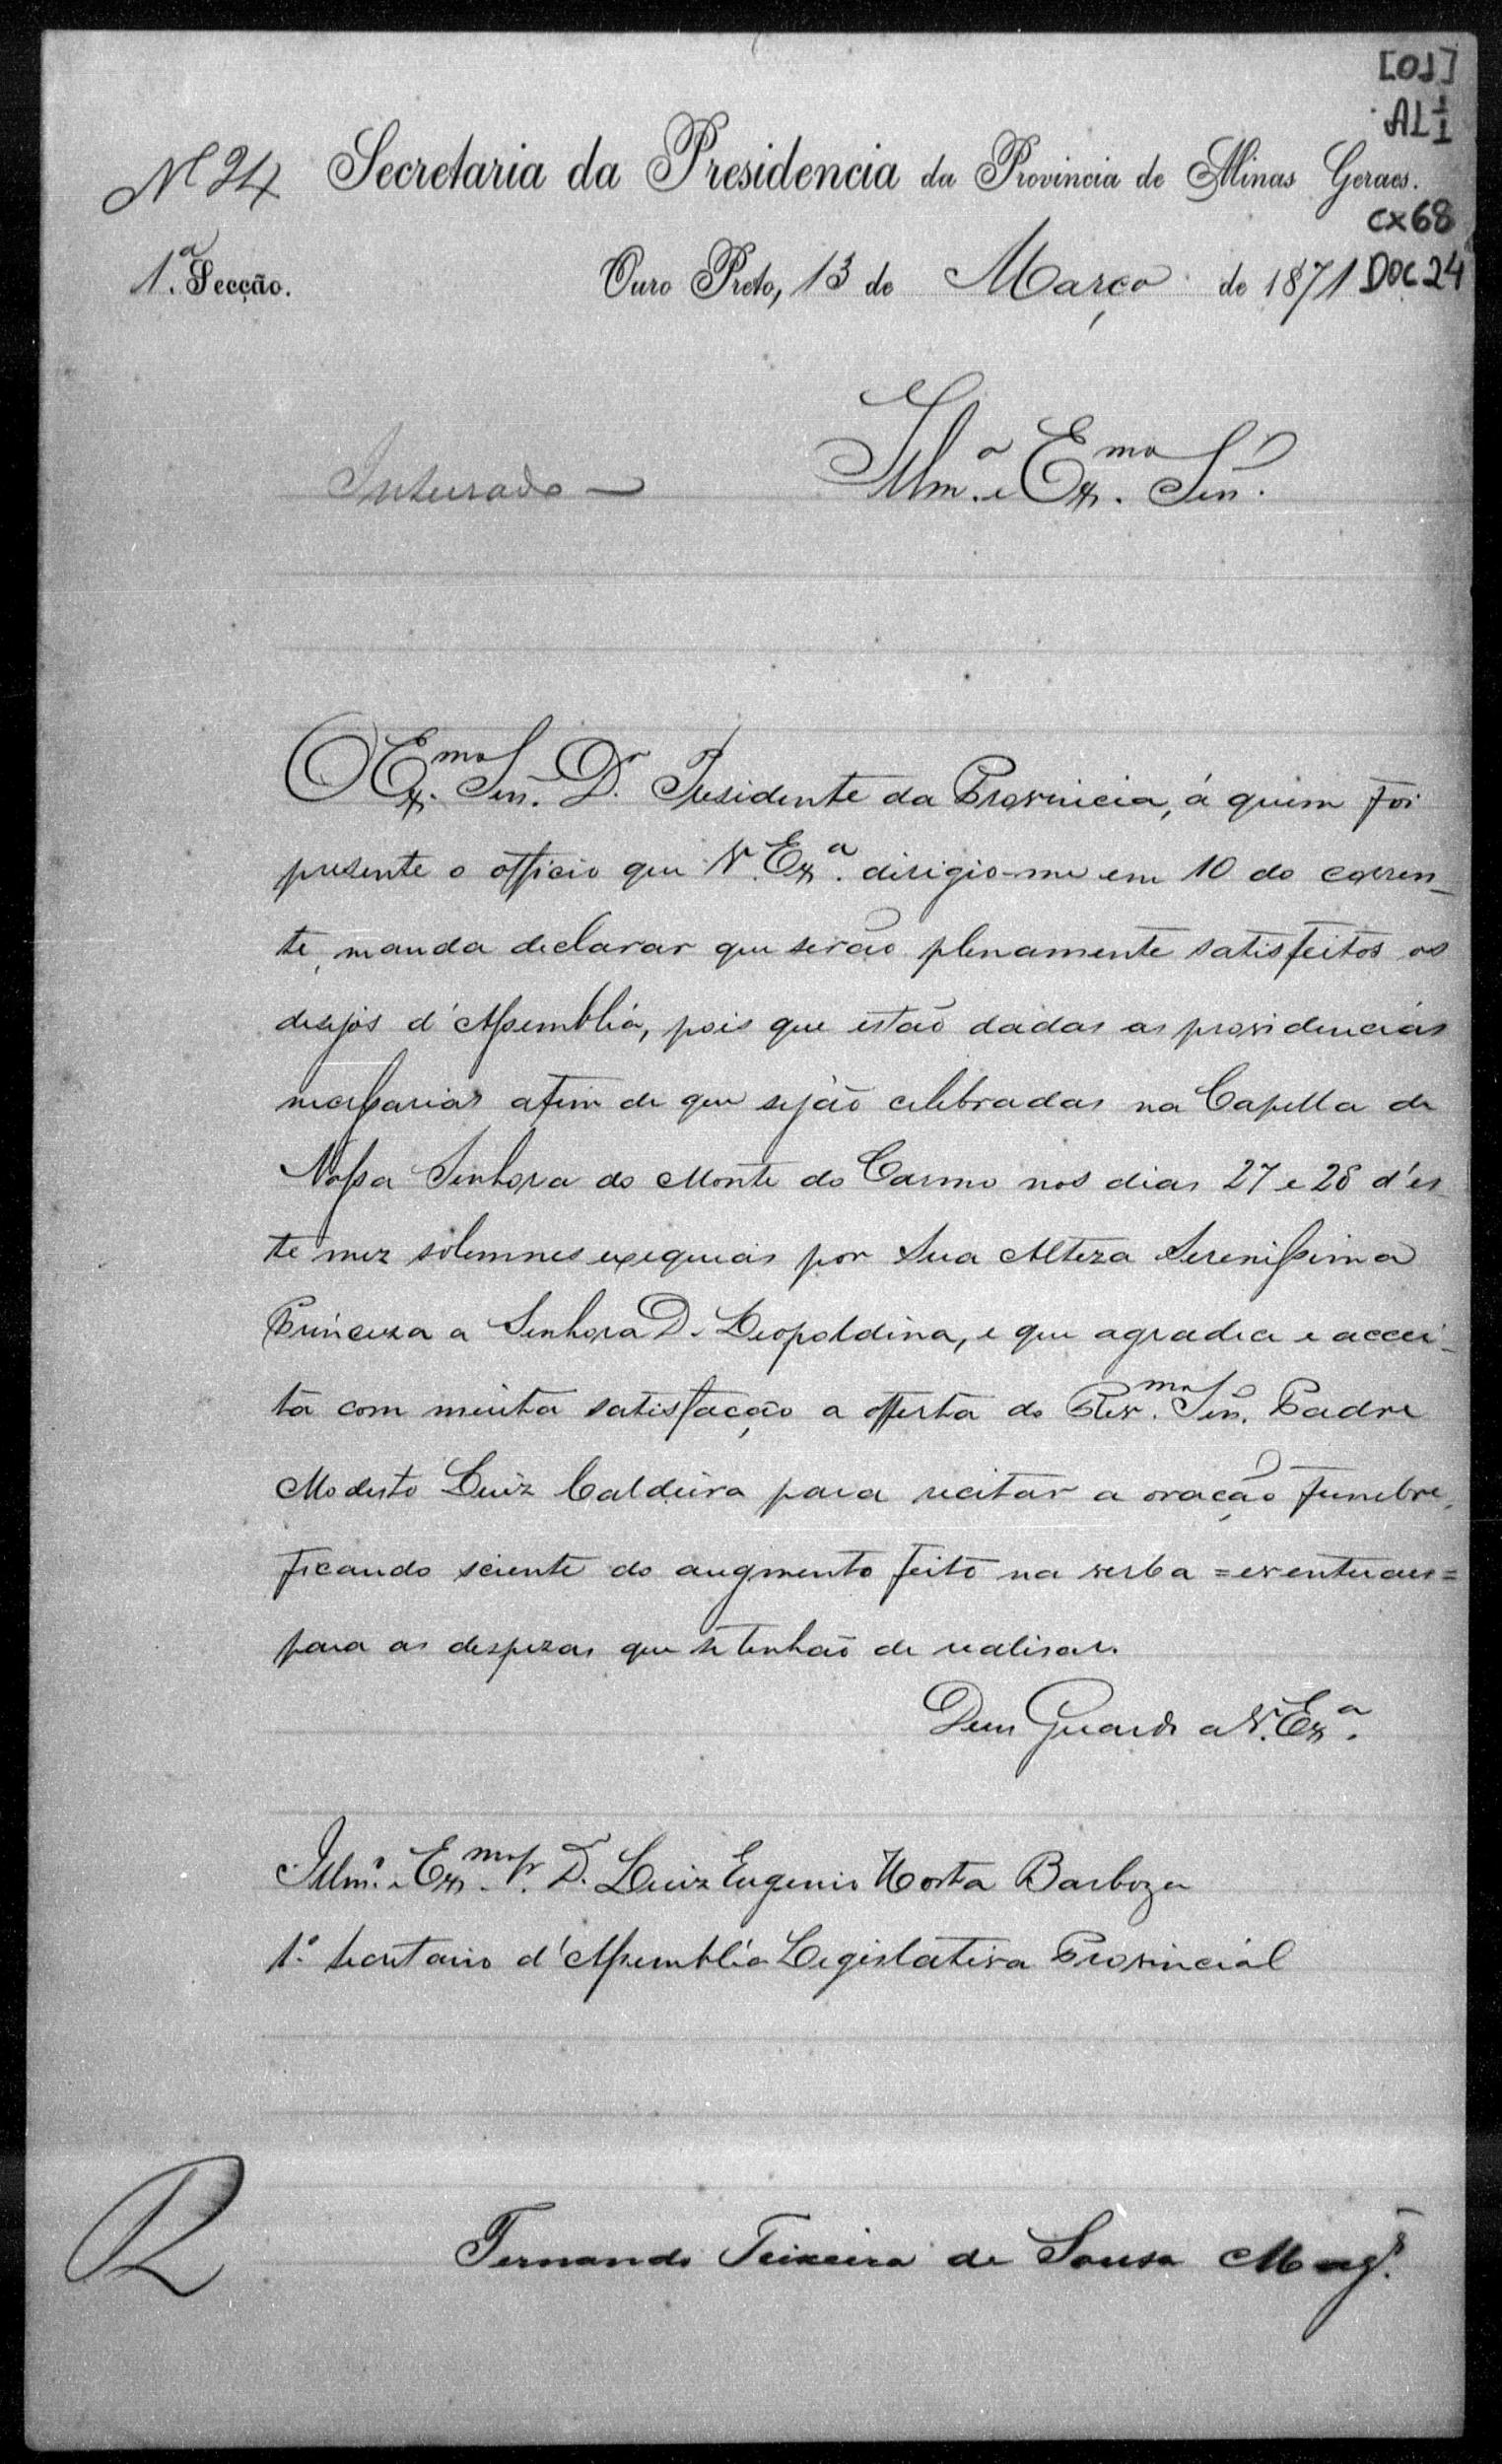 [01]
AL 1/1
Nº 24 Secretaria da Presidencia da Provincia de Minas Geraes.
CX 68
1.ª Secção. Ouro Preto, 13 de Março de 1871 DOC 24
Inteirado — Illm.º e Ex.mo Senr.
O Ex.mo Senr. Dr. Presidente da Provincia, á quem foi
presente o officio que V. Ex.ª dirigio-me em 10 do corren-
te, manda declarar que serão plenamente satisfeitos os
desejos d'Assembléa, pois que estão dadas as providencias
necessarias afim de que sejão celebradas na Capella de
Nossa Senhora do Monte do Carmo nos dias 27 e 28 d'es-
te mez solemnes exequias por Sua Alteza Serenissima
Princeza a Senhora D. Leopoldina, e que agradece e accei-
ta com muita satisfacção a offerta do Rev.mo Senr. Padre
Modesto Luiz Caldeira para recitar a oração funebre,
ficando sciente do augmento feito na verba =eventuaes=
para as despezas que se tenhão de realisar.
Deus Guarde a V. Ex.ª
Illm.º e Ex.mo Sr. Dr. Luiz Eugenio Horta Barboza
1.º Secretario d'Assembléa Legislativa Provincial
Fernando Teixeira de Sousa Mag.es